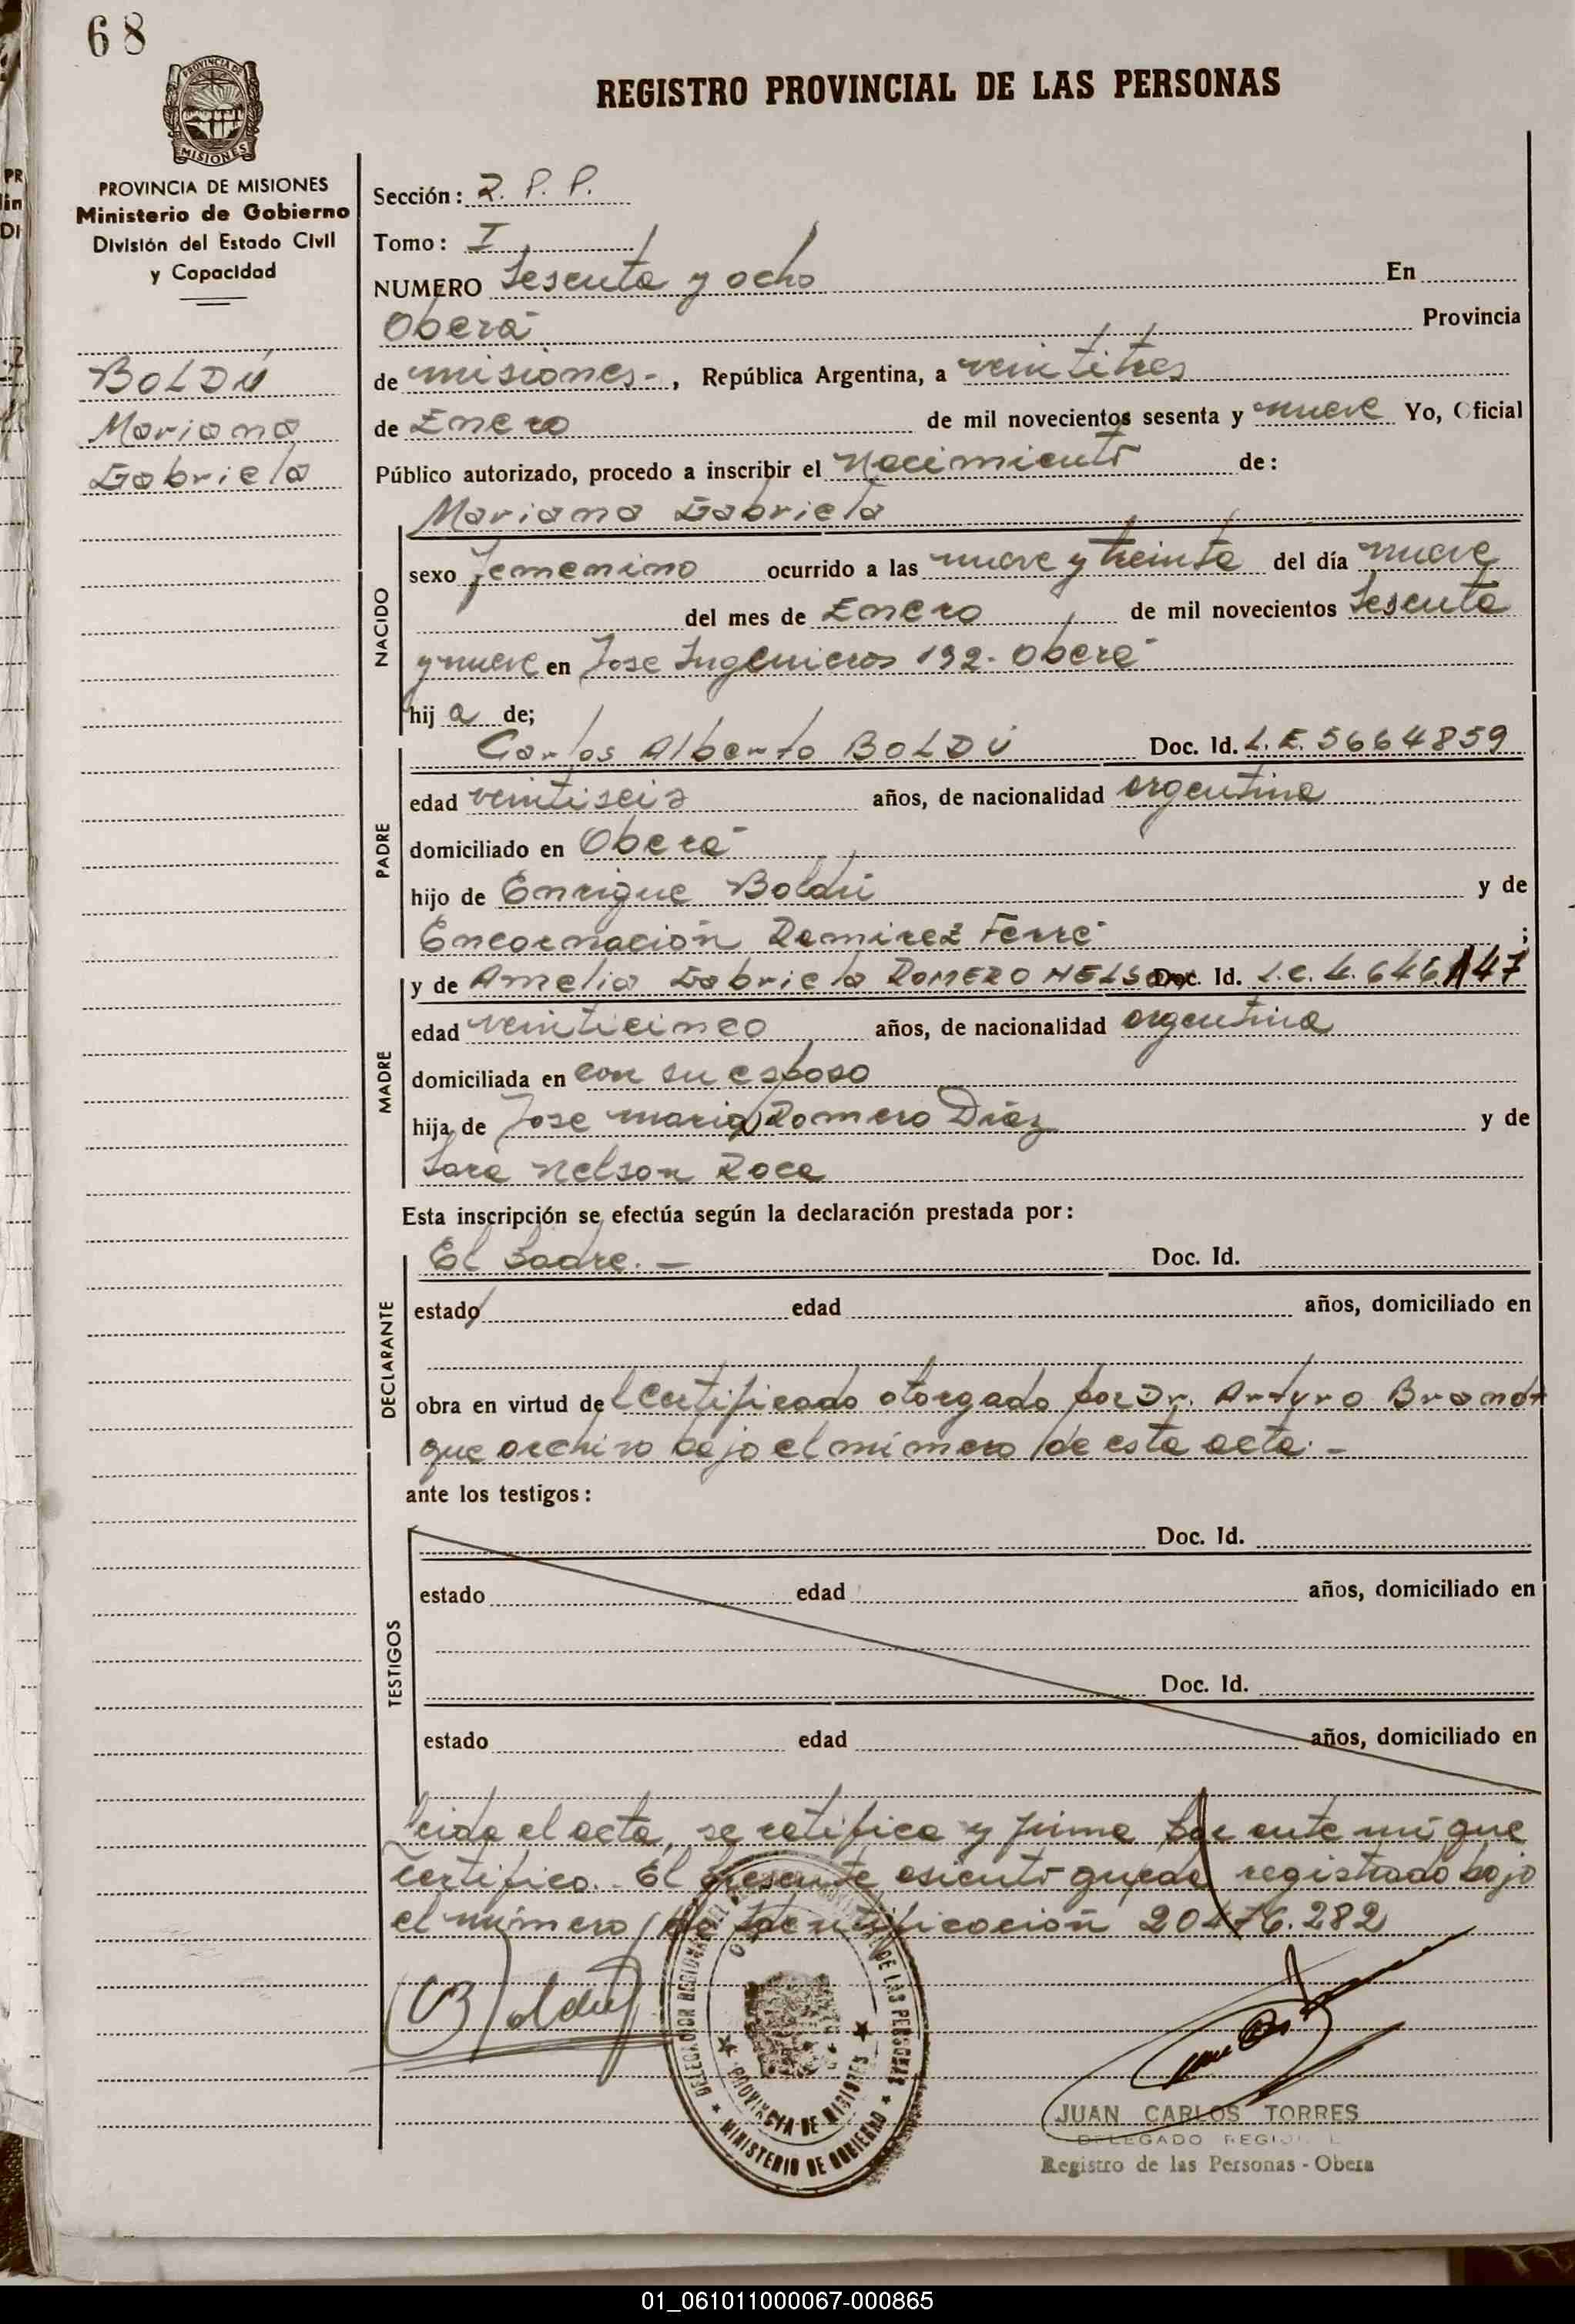 68
PROVINCIA DE
MISIONES
REGISTRO PROVINCIAL DE LAS PERSONAS
PROVINCIA DE MISIONES
Ministerio de Gobierno
División del Estado Civil
y Capacidad
BOLDÚ
Mariana
Gabriela
Sección: R. P. P.
Tomo: I
NUMERO Sesenta y ocho En
Oberá Provincia
de misiones-, República Argentina, a veintitres
de Enero de mil novecientos sesenta y nueve Yo, Oficial
Público autorizado, procedo a inscribir el nacimiento de:
Mariana Gabriela
NACIDO
sexo femenino ocurrido a las nueve y treinta del día nueve
del mes de Enero de mil novecientos sesenta
y nueve en Jose Ingenieros 192- Oberá
hij a de;
PADRE
Carlos Alberto BOLDÚ Doc. Id. L.E. 5664859
edad veintiseis años, de nacionalidad argentina
domiciliado en Oberá
hijo de Enrique Boldú y de
Encarnación Ramirez Ferré ;
MADRE
y de Amelia Gabriela ROMERO NELSON Doc. Id. L.C. 4.646.147
edad veinticinco años, de nacionalidad argentina
domiciliada en con su esposo
hija de Jose maria Romero Diaz y de
Sara Nelson Roca
Esta inscripción se efectúa según la declaración prestada por:
DECLARANTE
El Padre.- Doc. Id.
estado edad años, domiciliado en
obra en virtud del Certificado otorgado por Dr. Arturo Brandt
que archivo bajo el número de esta acta.-
ante los testigos:
TESTIGOS
Doc. Id.
estado edad años, domiciliado en
Doc. Id.
estado edad años, domiciliado en
Leida el acta, se ratifica y firma por ante mi que
certifico.- El presente asiento queda registrado bajo
el número de Identificación 20.476.282
Boldú
DELEGACION REGIONAL DEL DE LAS PERSONAS
PROVINCIA DE MISIONES
MINISTERIO DE GOBIERNO
JUAN CARLOS TORRES
DELEGADO REGIONAL
Registro de las Personas - Obera
01_061011000067-000865